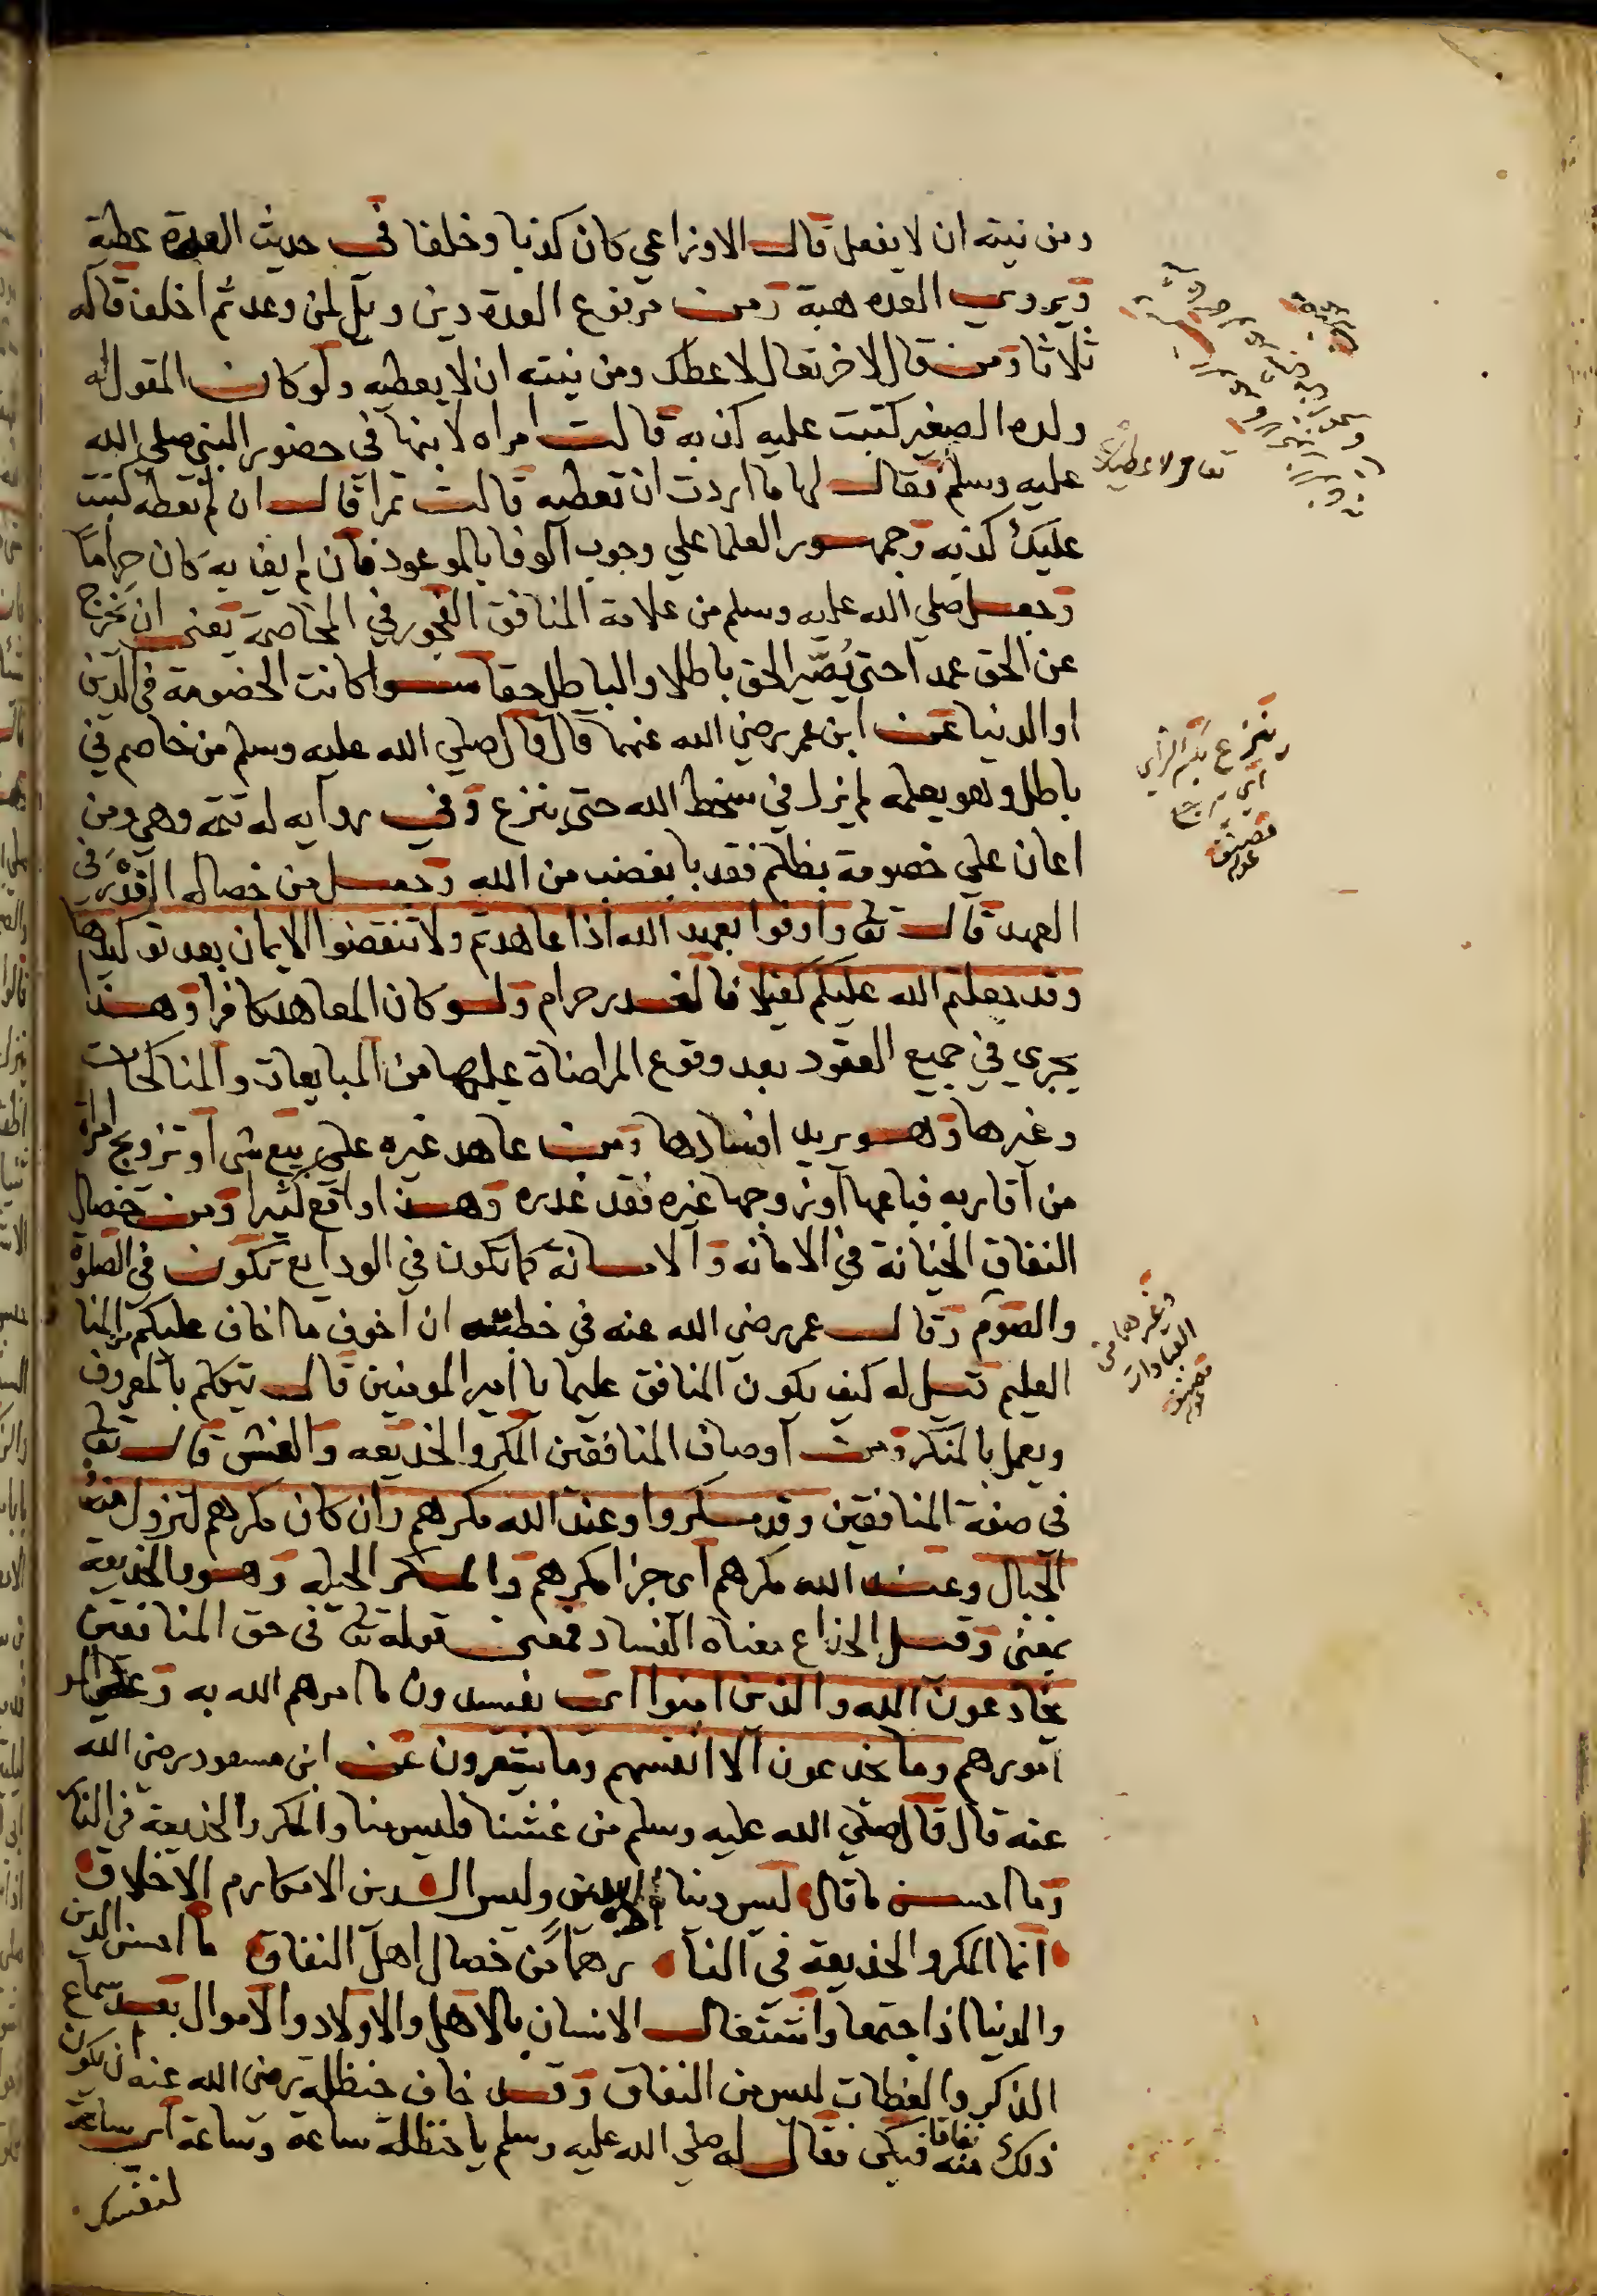 ومن نيته ان لا يفعل قال الاوزاعي كان كذبا وخلفا في حديث العدة عطية
ويروي العده هبة ومن مرفوع العدة دين ويل لمن وعد ثم اخلف قاله
ثلاثا ومن قال لاخر تعال لاعطك ومن نيته ان لا يعطيه ولو كان المقول له
ولده الصغير كتبت عليه كذبه قالت امراه لابنها في حضور النبي صلي الله
عليه وسلم فقال لها ما اردت ان تعطيه قالت تمرا قال ان لم تعطه كتبت
عليك كذبه وجمهور العلما علي وجوب الوفا بالموعود فان لم يف به كان حراما
وجعل صلي الله عليه وسلم من علامة المنافق الفجور في المخاصمة يعني ان يخرج
عن الحق عمدا حتي يُصَيّر الحق باطلا والباطل حقا سوا كانت الخصومة في الدين
او الدنيا عن ابن عمر رضي الله عنهما قال قال صلي الله عليه وسلم من خاصم في
باطل وهو يعلمه لم يزل في سخط الله حتي ينزع وفي روايه له تتمة وهي ومن
اعان علي خصومة بظلم فقد با بغضب من الله وجعل من خصاله الغدر في
العهد قال تعالي واوفوا بعهد الله اذا عاهدتم ولا تنقضوا الايمان بعد توكيدها
وقد جعلتم الله عليكم كفيلا فالغدر حرام ولو كان المعاهد كافرا وهذا
يجري في جميع العقود بعد وقوع المراضاة عليها من المبايعات والمناكحات
وغيرها وهو يريد افسادها ومن عاهد غيره علي بيع شي او تزويج امراة
من اقاربه فباعها او زوجها غيره فقد غدره وهذا واقع كثيرا ومن خصال
النفاق الخيانة في الامانه والامانة كما تكون في الودايع تكون في الصلوة
والصوم وقال عمر رضي الله عنه في خطبته ان اخوف ما اخاف عليكم المنافق
العليم قيل له كيف يكون المنافق عليما يا امير المومنين قال يتكلم بالمعروف
ويعمل بالمنكر ومن اوصاف المنافقين المكر والخديعه والغش قال تعالي
في صفة المنافقين وقد مكروا وعند الله مكرهم وان كان مكرهم لتزول منه
الجبال وعند الله مكرهم اي جزا مكرهم والمكر الحيله وهو والخديعة
بمعني وقيل الخداع معناه الفساد فمعني قوله تعالي في حق المنافقين
يخادعون الله والذين امنوا اي يفسدون ما امرهم الله به
امورهم وما يخدعون الا انفسهم وما يشعرون عن ابن مسعود رضي الله
عنه قال قال صلي الله عليه وسلم من غشنا فليس منا والمكر والخديعة في النار
وما احسن ما قال ليس دنيا الا بدين وليس الدين الا مكارم الاخلاق
انما المكر والخديعة في النا ر هما من خصال اهل النفاق ما احسن الدين
والدنيا اذا جتمعا واشتغال الانسان بالاهل والاولاد والاموال بعد سماع
الذكر والعظات ليس من النفاق وقد خاف حنظلة رضي الله عنه ان يكون
ذلك منه نفاقا فبكي فقال له صلي الله عليه وسلم يا حنظلة ساعة وساعة اي ساعة
لنفسك
تعال لاعطيك
ينزع بكسر الزاي
اي يرجع
وغيرهما من
العبادات